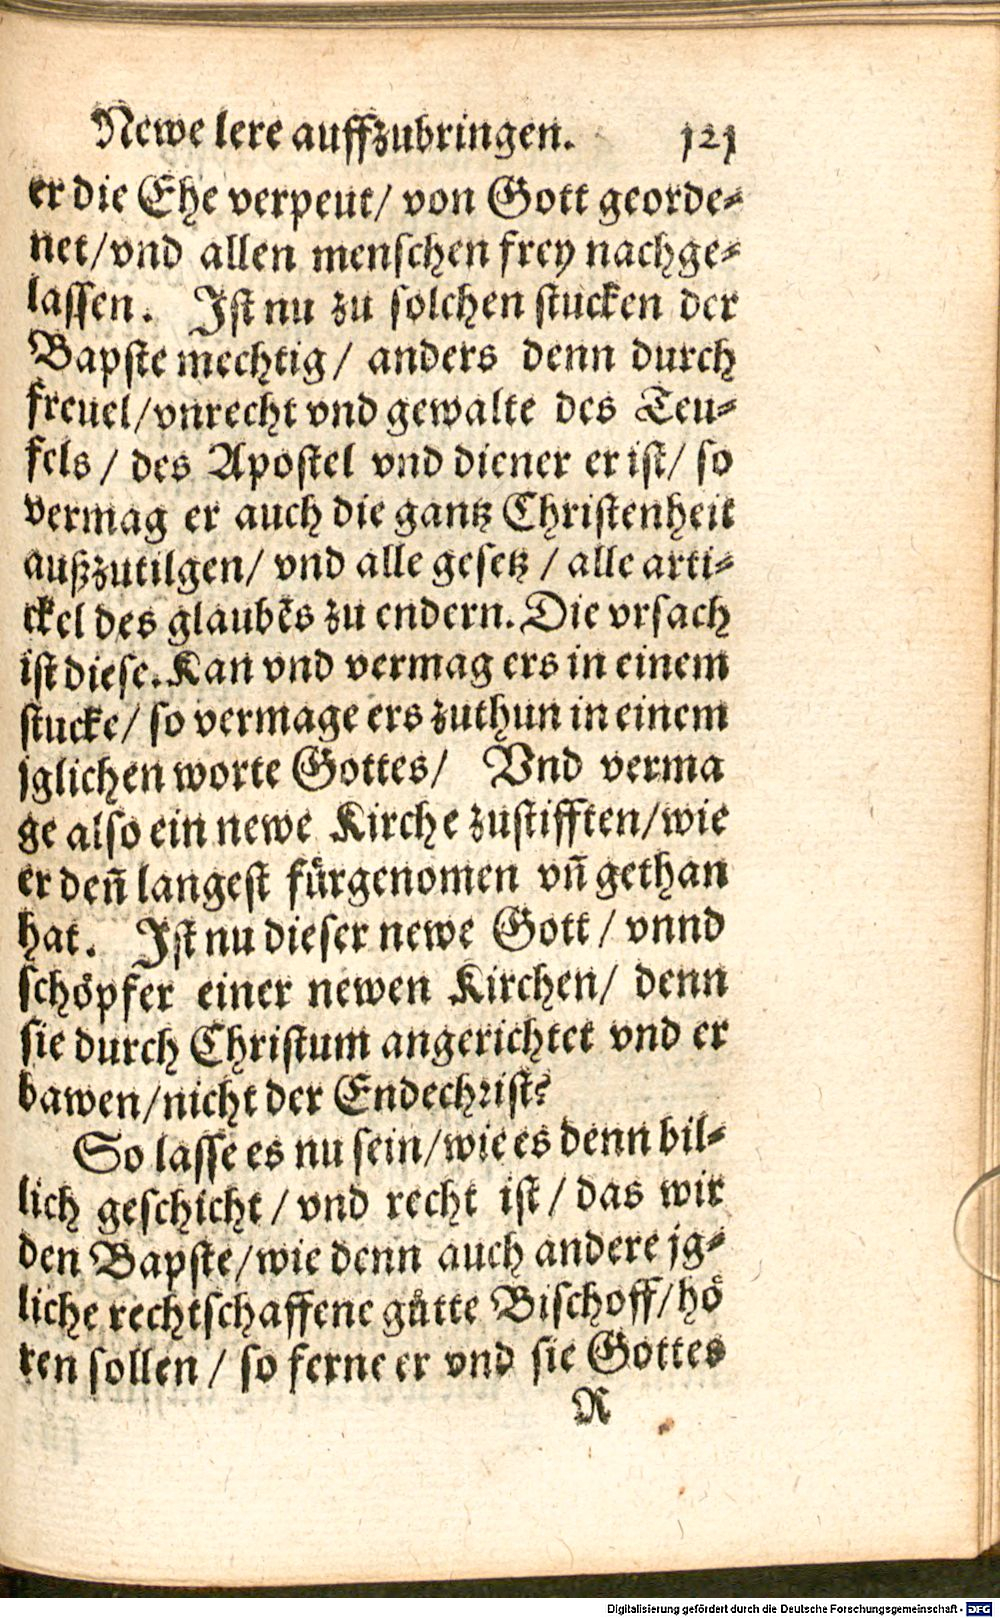 Newe lere auffzubringen. 121
er die Ehe verpeut/ von Gott georde⸗
net/vnd allen menschen frey nachge⸗
lassen. Ist nu zu solchen stucken der
Bapste mechtig/ anders denn durch
freuel/vnrecht vnd gewalte des Teu⸗
fels/ des Apostel vnd diener er ist/ so
vermag er auch die gantz Christenheit
außzutilgen/ vnd alle gesetz/ alle arti⸗
ckel des glaubēs zu endern. Die vrsach
ist diese. Kan vnd vermag ers in einem
stucke/ so vermage ers zuthun in einem
jglichen worte Gottes/ Vnd verma
ge also ein newe Kirche zustifften/wie
er deñ langest fürgenomen vñ gethan
hat. Ist nu dieser newe Gott/ vnnd
schöpfer einer newen Kirchen/ denn
sie durch Christum angerichtet vnd er
bawen/nicht der Endechrist?
So lasse es nu sein/wie es denn bil⸗
lich geschicht/ vnd recht ist/ das wir
den Bapste/wie denn auch andere jg⸗
liche rechtschaffene gůtte Bischoff/hö
ren sollen/ so ferne er vnd sie Gottes
R
Digitalisierung gefördert durch die Deutsche Forschungsgemeinschaft - DFG